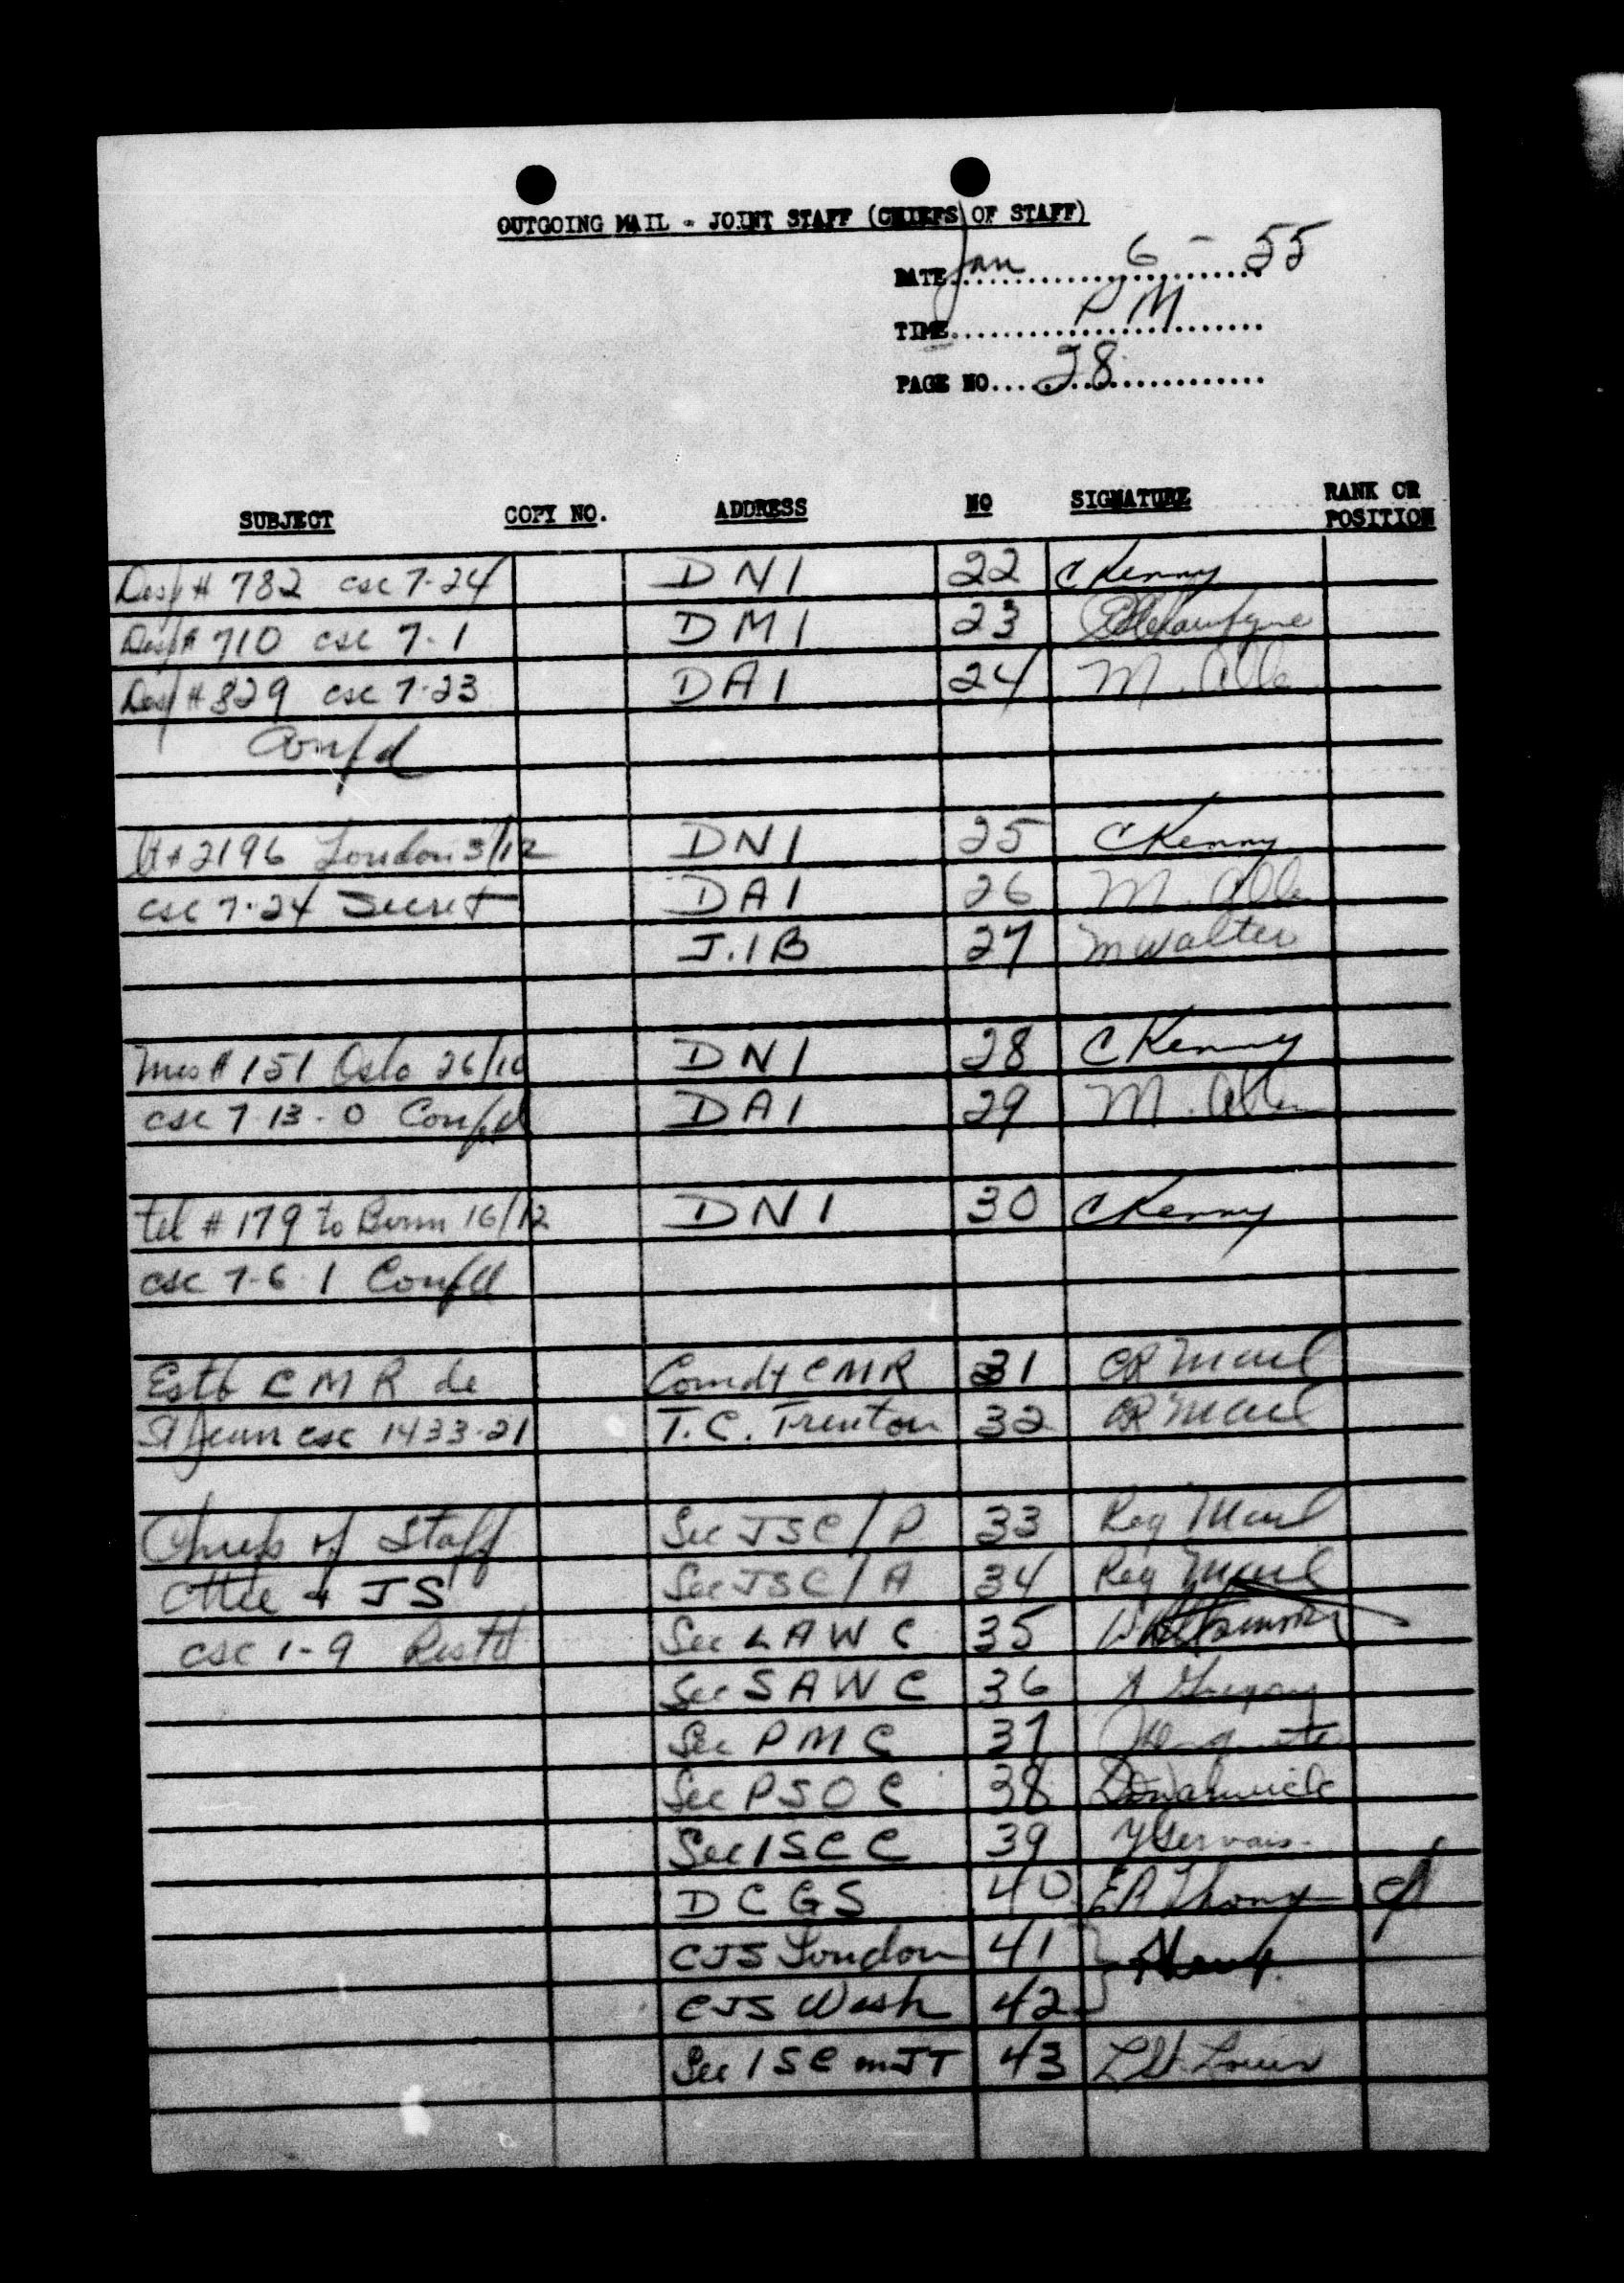 OUTGOING MAIL - JOINT STAFF (CHIEFS OF STAFF)
DATE Jan 6 - 55
TIME PM
PAGE NO. 28
SUBJECT COPY NO. ADDRESS NO SIGNATURE RANK OR POSITION
Desp # 782 csc 7-24 DNI 22 C Kenny
Desp # 710 csc 7-1 DMI 23
Desp # 829 csc 7-23 DAI 24 M. Alle
Confd
2196 London 3/12 DNI 25 C Kenny
csc 7-24 Secret DAI 26 M. Alle
J.IB 27 M Walter
Mess # 151 Oslo 26/10 DNI 28 C Kenny
csc 7-13-0 Confd DAI 29 M. Allen
tel # 179 to Bonn 16/12 DNI 30 C Kenny
csc 7-6-1 Confd
Estb CMR de Comdt CMR 31 CR Mail
St Jean csc 1433-21 T.C. Trenton 32 CR Mail
Chiefs of Staff Sec JSC/P 33 Reg Mail
Cttee & JS Sec JSC/A 34 Reg Mail
csc 1-9 Restd Sec LAWC 35
Sec SAWC 36 A Gregory
Sec PMC 37
Sec PSOC 38
Sec ISCC 39 Y Gervais
DCGS 40
CJS London 41
CJS Wash 42
Sec ISC MJT 43 L St. Louis